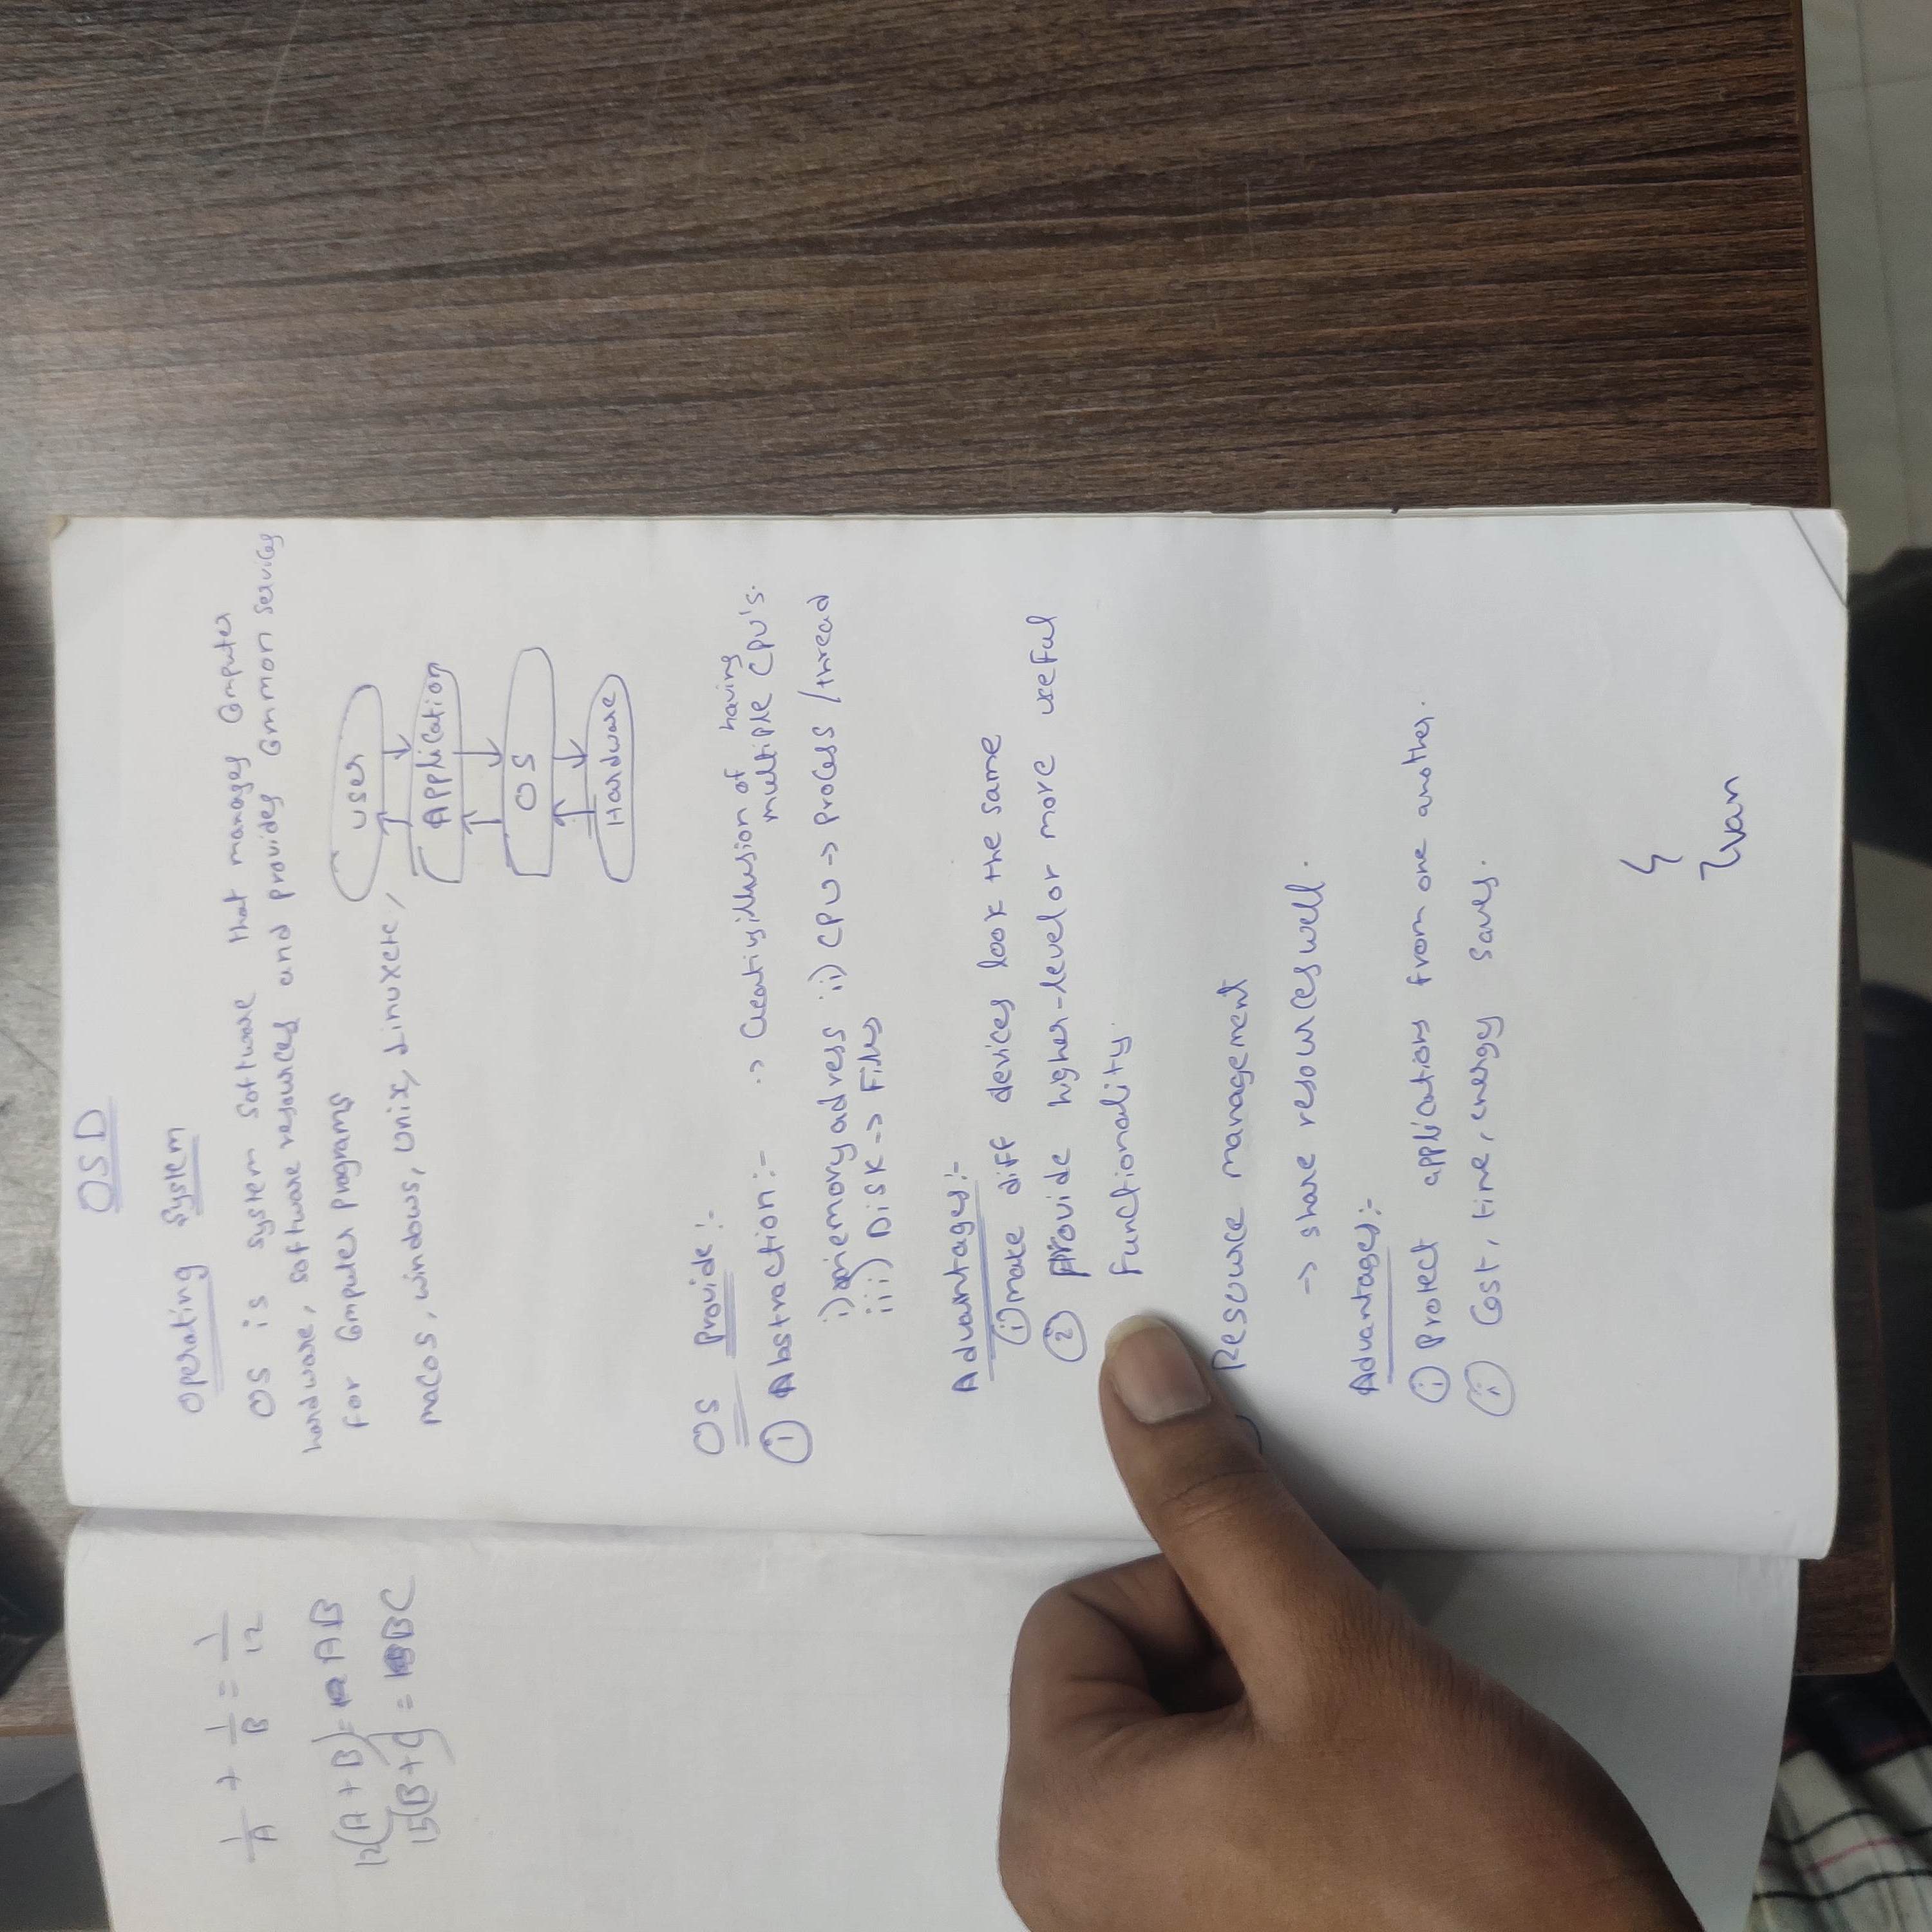 1/A + 1/B = 1/12
12(A+B) = AB
15(B+C) = BC
OSD
Operating System
OS is system software that manages Computer
hardware, software resources and provides Common services
for Computer programs
macos, windows, Unix, Linuxetc,
User
Application
OS
Hardware
OS Provide:-
① Abstraction:- -> Creating illusion of having
multiple CPU's.
i) memory adress ii) CPU -> Process / thread
iii) Disk -> Files
Advantages:-
① make diff devices look the same
② Provide higher-level or more useful
Functionality.
Resource management
-> share resources well.
Advantages:-
① Protect applications from one another.
② Cost, time, energy saves.